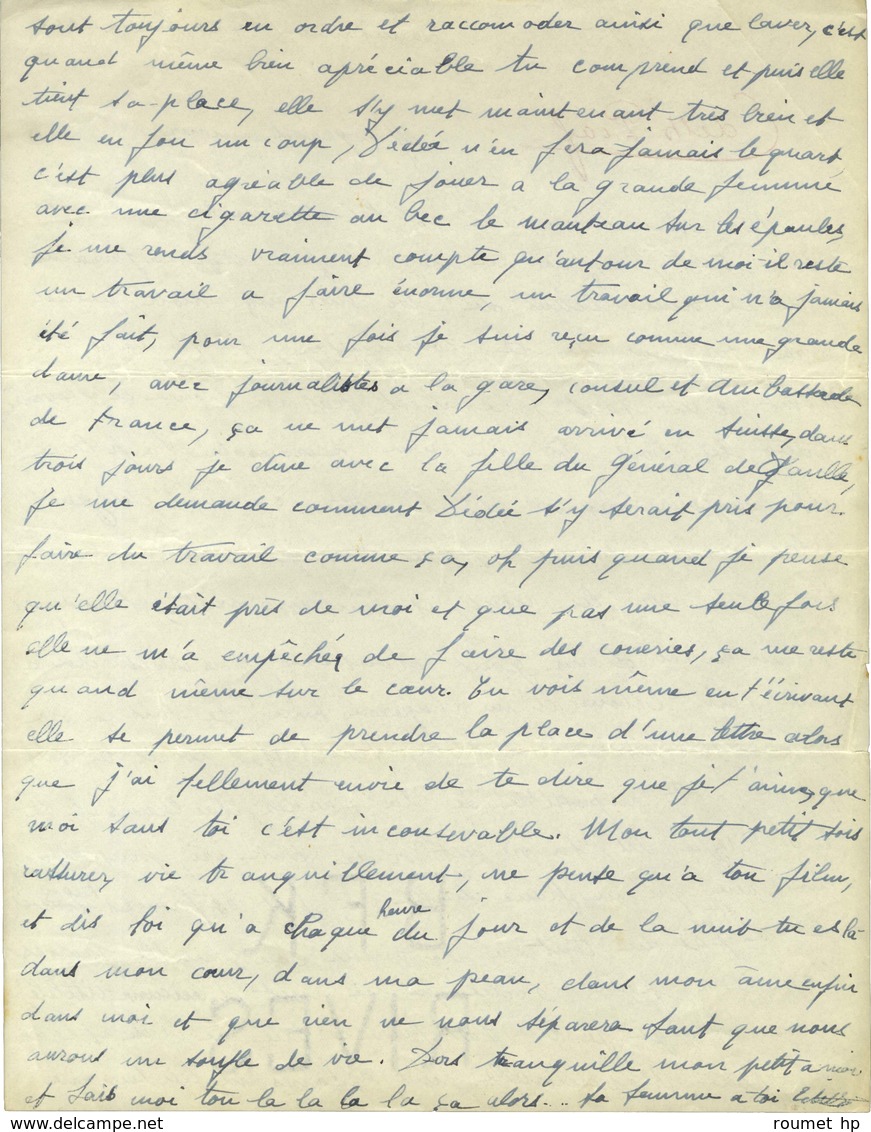 sont toujours en ordre et raccomoder ainsi que laver, c'est
quand même bien apréciable tu comprend et puis elle
tient sa place, elle s'y met maintenant très bien et
elle en fou un coup, Dédée n'en fera jamais le quart
c'est plus agréable de jouer a la grande femme
avec une cigarette au bec le manteau sur les épaules,
je me rends vraiment compte qu'autour de moi il reste
un travail a faire énorme, un travail qui n'a jamais
été fait, pour une fois je suis reçu comme une grande
dame, avec journalistes a la gare, consul et Ambassade
de France, ça ne met jamais arrivé en Suisse, dans
trois jours je dîne avec la fille du Général de Gaulle,
Je me demande comment Dédée s'y serait pris pour.
faire du travail comme ça, oh puis quand je pense
qu'elle était près de moi et que pas une seule fois
elle ne m'a empêchée de faire des coneries, ça me reste
quand même sur le cœur. Tu vois même en t'écrivant
elle se permet de prendre la place d'une lettre alors
que j'ai tellement envie de te dire que je t'aime, que
moi sans toi c'est inconsevable. Mon tout petit sois
rassurer, vie tranquillement, ne pense qu'a ton film,
et dis toi qu'a chaque heure du jour et de la nuit tu es là
dans mon cœur, dans ma peau, dans mon âme enfin
dans moi et que rien ne nous séparera tant que nous
aurons un soufle de vie. Dors tranquille mon petit a moi
et fais moi ton la la la la ça alors... ta femme a toi Edith
roumet hp